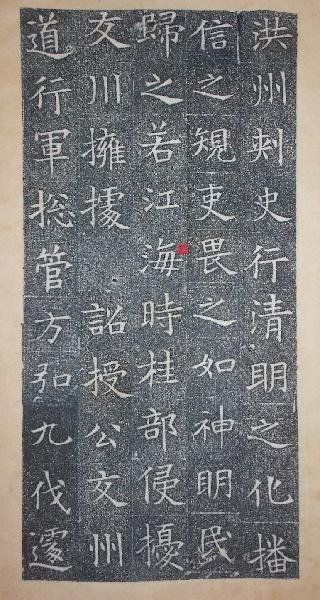 洪州刺史行清明之化播
信之規吏畏之如神明民
歸之若江海時桂部侵擾
交川擁據 詔授公交州
道行軍総管方弘九伐遽